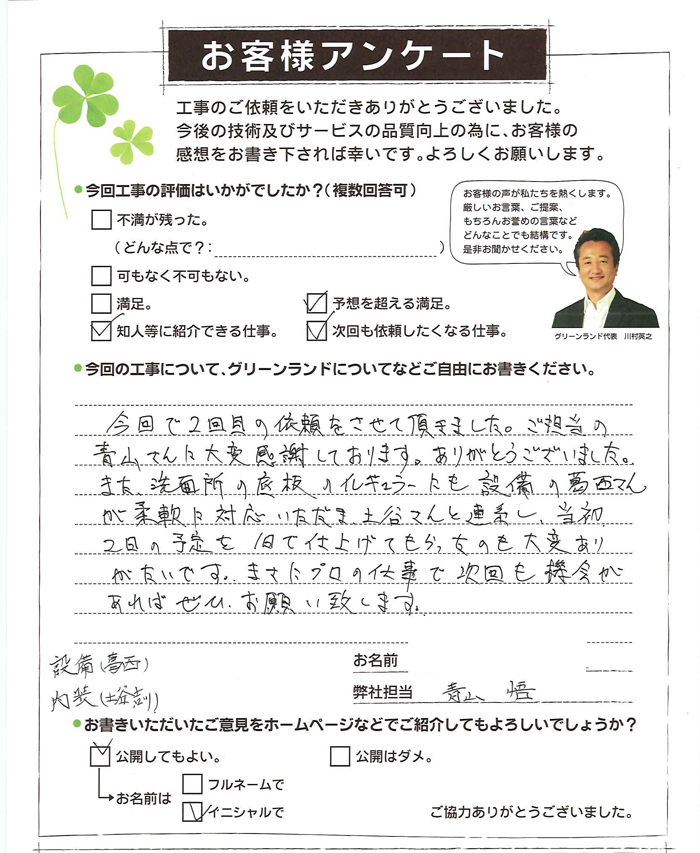 お客様アンケート
工事のご依頼をいただきありがとうございました。
今後の技術及びサービスの品質向上の為に、お客様の
感想をお書き下されば幸いです。よろしくお願いします。
●今回工事の評価はいかがでしたか？（複数回答可）
不満が残った。
（どんな点で？：　）
可もなく不可もない。
満足。
予想を超える満足。
知人等に紹介できる仕事。
次回も依頼したくなる仕事。
お客様の声が私たちを熱くします。
厳しいお言葉、ご提案、
もちろんお誉めの言葉など
どんなことでも結構です。
是非お聞かせください。
グリーンランド代表　川村英之
●今回の工事について、グリーンランドについてなどご自由にお書きください。
今回で2回目の依頼をさせて頂きました。ご担当の
青山さんに大変感謝しております。ありがとうございました。
また、洗面所の底板のイレギュラーにも設備の葛西さん
が柔軟に対応いただき、土谷さんと連系し、当初
2日の予定を1日で仕上げてもらったのも大変あり
がたいです。まさにプロの仕事で次回も機会が
あればぜひ、お願い致します。
設備(葛西)
内装(土谷)
お名前
弊社担当　青山　悟
●お書きいただいたご意見をホームページなどでご紹介してもよろしいでしょうか？
公開してもよい。
公開はダメ。
お名前は
フルネームで
イニシャルで
ご協力ありがとうございました。